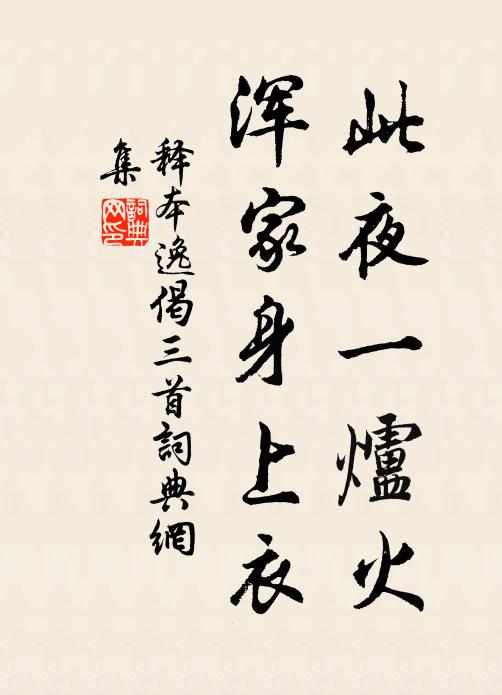 此夜一爐火
渾家身上衣
释本逸偈三首詞典網
集
詞典
网印